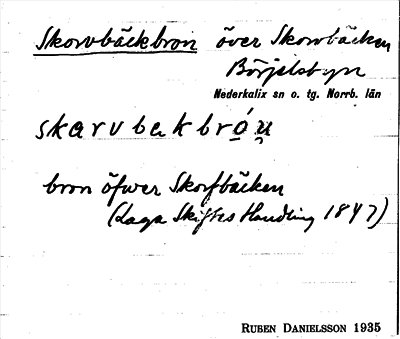 Skorvbäckbron över Skorvbäcken
Börjelsbyn
Nederkalix sn o. tg. Norrb. län
skarvbakbrǫ́ṷ
bron öfwer Skorfbäcken
(Laga Skiftes Handling 1847)
RUBEN DANIELSSON 1935